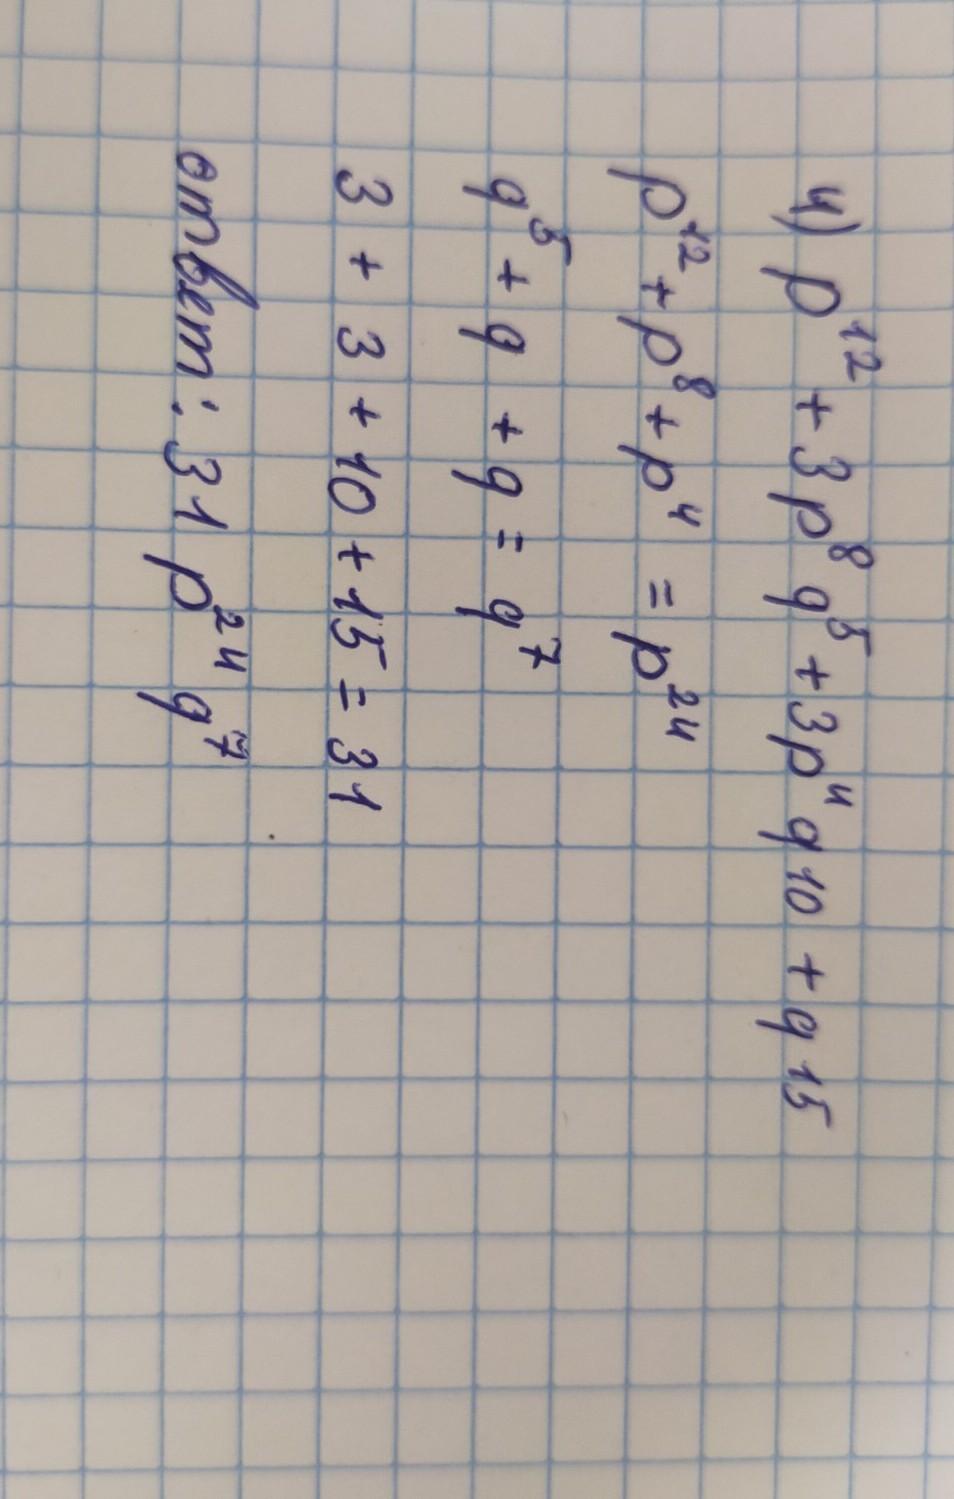 4) p¹² + 3p⁸ q⁵ + 3p⁴ q 10 + q 15
p¹² + p⁸ + p⁴ = p²⁴
q⁵ + q + q = q⁷
3 + 3 + 10 + 15 = 31
ответ: 31 p²⁴ q⁷